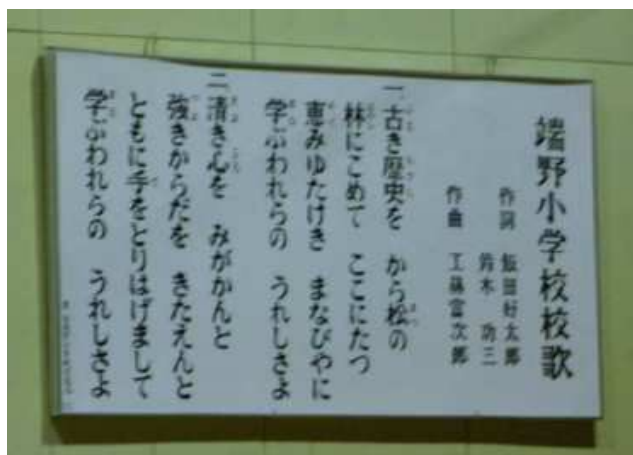 端野小学校校歌
作詞 飯田好太郎
鈴木 功三
作曲 工藤富次郎
一 古き歴史を から松の
林にこめて ここにたつ
恵みゆたけき まなびやに
学ぶわれらの うれしさよ
二 清き心を みがかんと
強きからだを きたえんと
ともに手をとりはげまして
学ぶわれらの うれしさよ